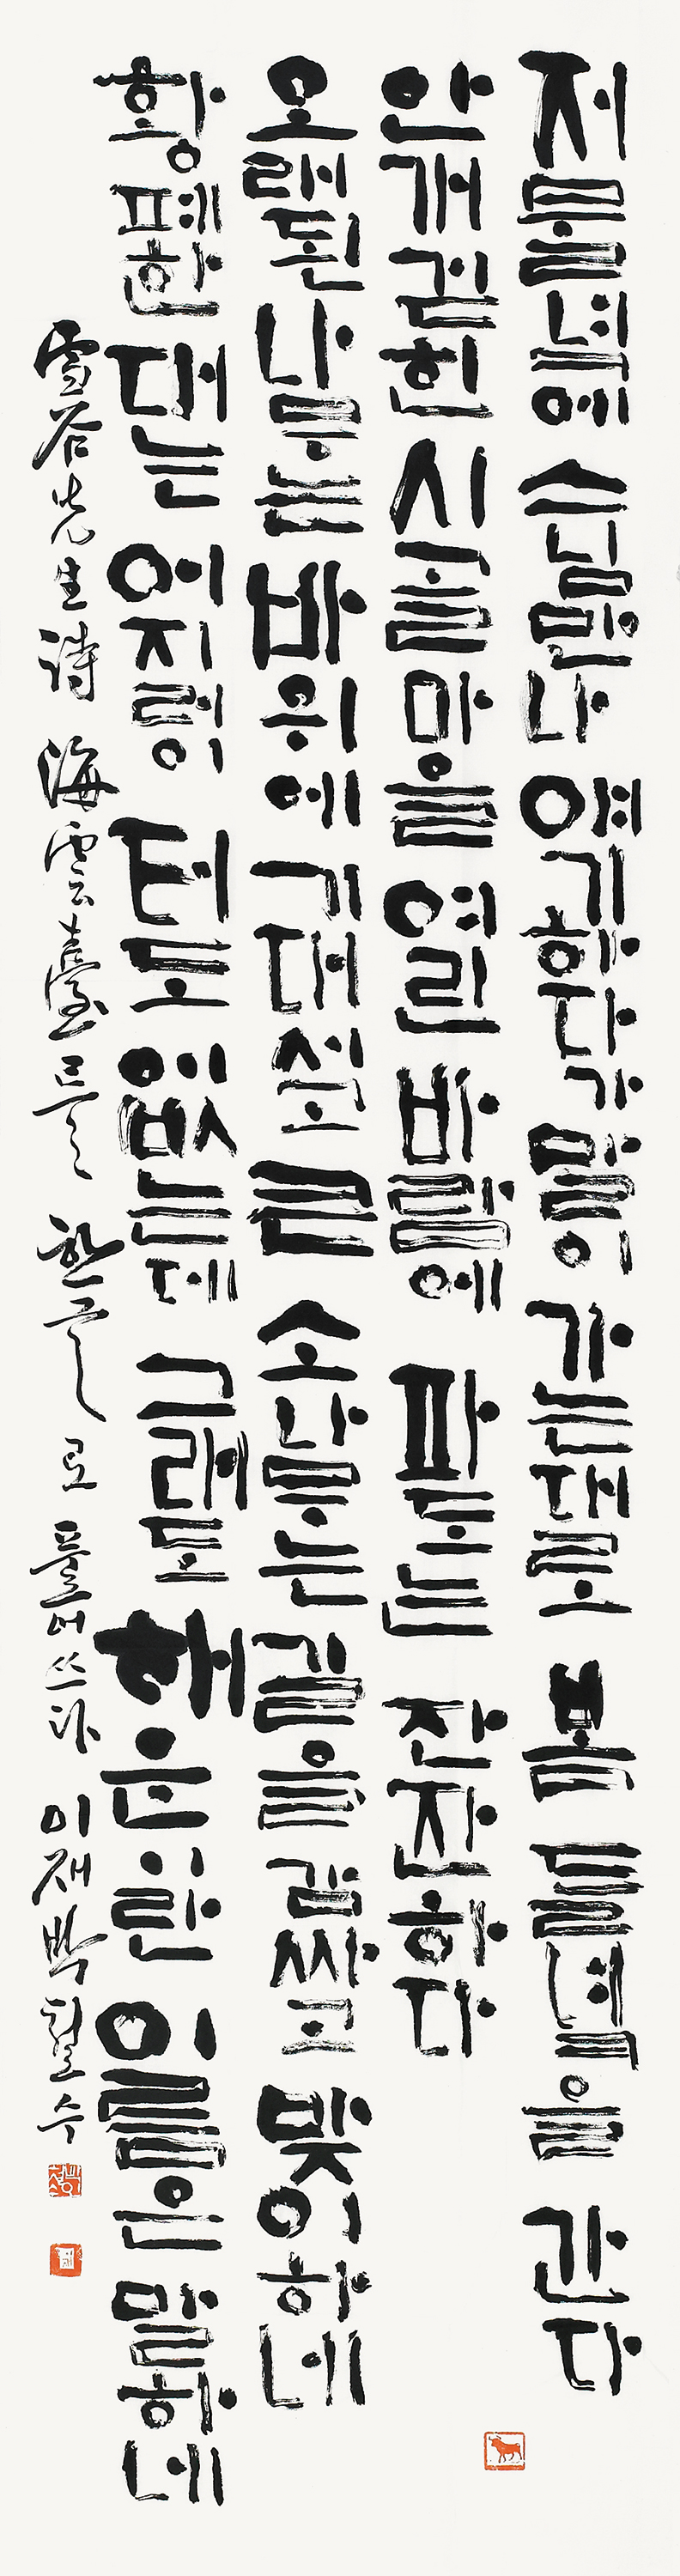 저물녘에 손님 만나 얘기하다가 말이 가는대로 봄 들녘을 간다
안개 걷힌 시골 마을 열린 바람에 파도는 잔잔하다
오래된 나무는 바위에 기대 섰고 큰 소나무는 길을 감싸고 맞이하네
황폐한 대는 어지렁 터도 없는데 그래도 해운란 이름은 말하네
雪谷先生詩 海雲臺를 한글로 풀어쓰다 이재 박철수